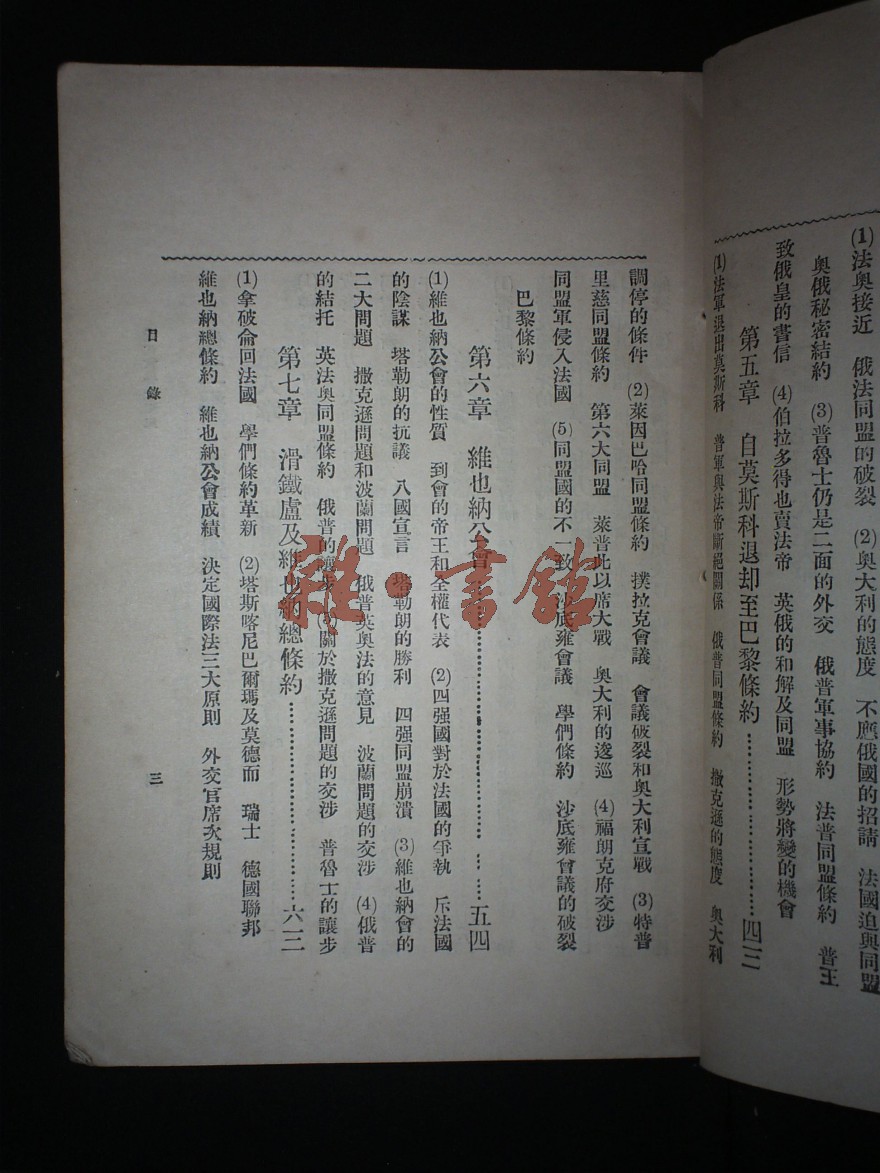 (1)法奧接近　俄法同盟的破裂　(2)奧大利的態度　不應俄國的招請　法國迫與同盟
奧俄秘密結約　(3)普魯士仍是二面的外交　俄普軍事協約　法普同盟條約　普王
致俄皇的書信　(4)伯拉多得也賣法帝　英俄的和解及同盟　形勢將變的機會
第五章　自莫斯科退却至巴黎條約…………………四三
(1)法軍退出莫斯科　普軍與法帝斷絕關係　俄普同盟條約　撒克遜的態度　奧大利
調停的條件　(2)萊因巴哈同盟條約　撲拉克會議　會議破裂和奧大利宣戰　(3)特普
里慈同盟條約　第六大同盟　萊普此以席大戰　奧大利的逡巡　(4)福朗克府交涉
同盟軍侵入法國　(5)同盟國的不一致　沙底雍會議　學們條約　沙底雍會議的破裂
巴黎條約
第六章　維也納公會…………………………五四
(1)維也納公會的性質　到會的帝王和全權代表　(2)四强國對於法國的爭執　斥法國
的陰謀　塔勒朗的抗議　八國宣言　塔勒朗的勝利　四强同盟崩潰　(3)維也納會的
二大問題　撒克遜問題和波蘭問題　俄普英奧法的意見　波蘭問題的交涉　(4)俄普
的結托　英法奧同盟條約　俄普的讓步　(5)關於撒克遜問題的交涉　普魯士的讓步
第七章　滑鐵盧及維也納總條約…………………六三
(1)拿破侖回法國　學們條約革新　(2)塔斯喀尼巴爾瑪及莫德而　瑞士　德國聯邦
維也納總條約　維也納公會成績　決定國際法三大原則　外交官席次規則
目錄
三
雜·書館